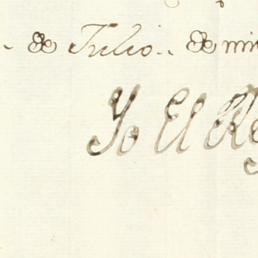 de Julio. de mi
Yo El Re